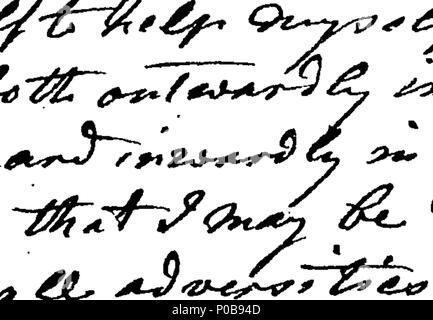 to help mysel
oth outwardly i
and inwardly in
that I may be
all adversities
alamy
Image ID: P0B94D
www.alamy.com